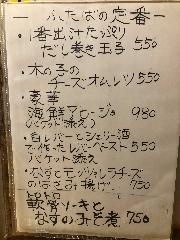 ふたばの定番
一番出汁たっぷり
だし巻き玉子 550
・木の子の
チーズオムレツ 550
・豪華
海鮮アヒージョ 980
(バケット添え)
・白レバーとシェリー酒
で作ったレバーペースト 550
バケット添え
・なすとモッツァレラチーズ
のはさみ揚げ 750
トロトロ
軟骨ソーキと
なすのみそ煮 750